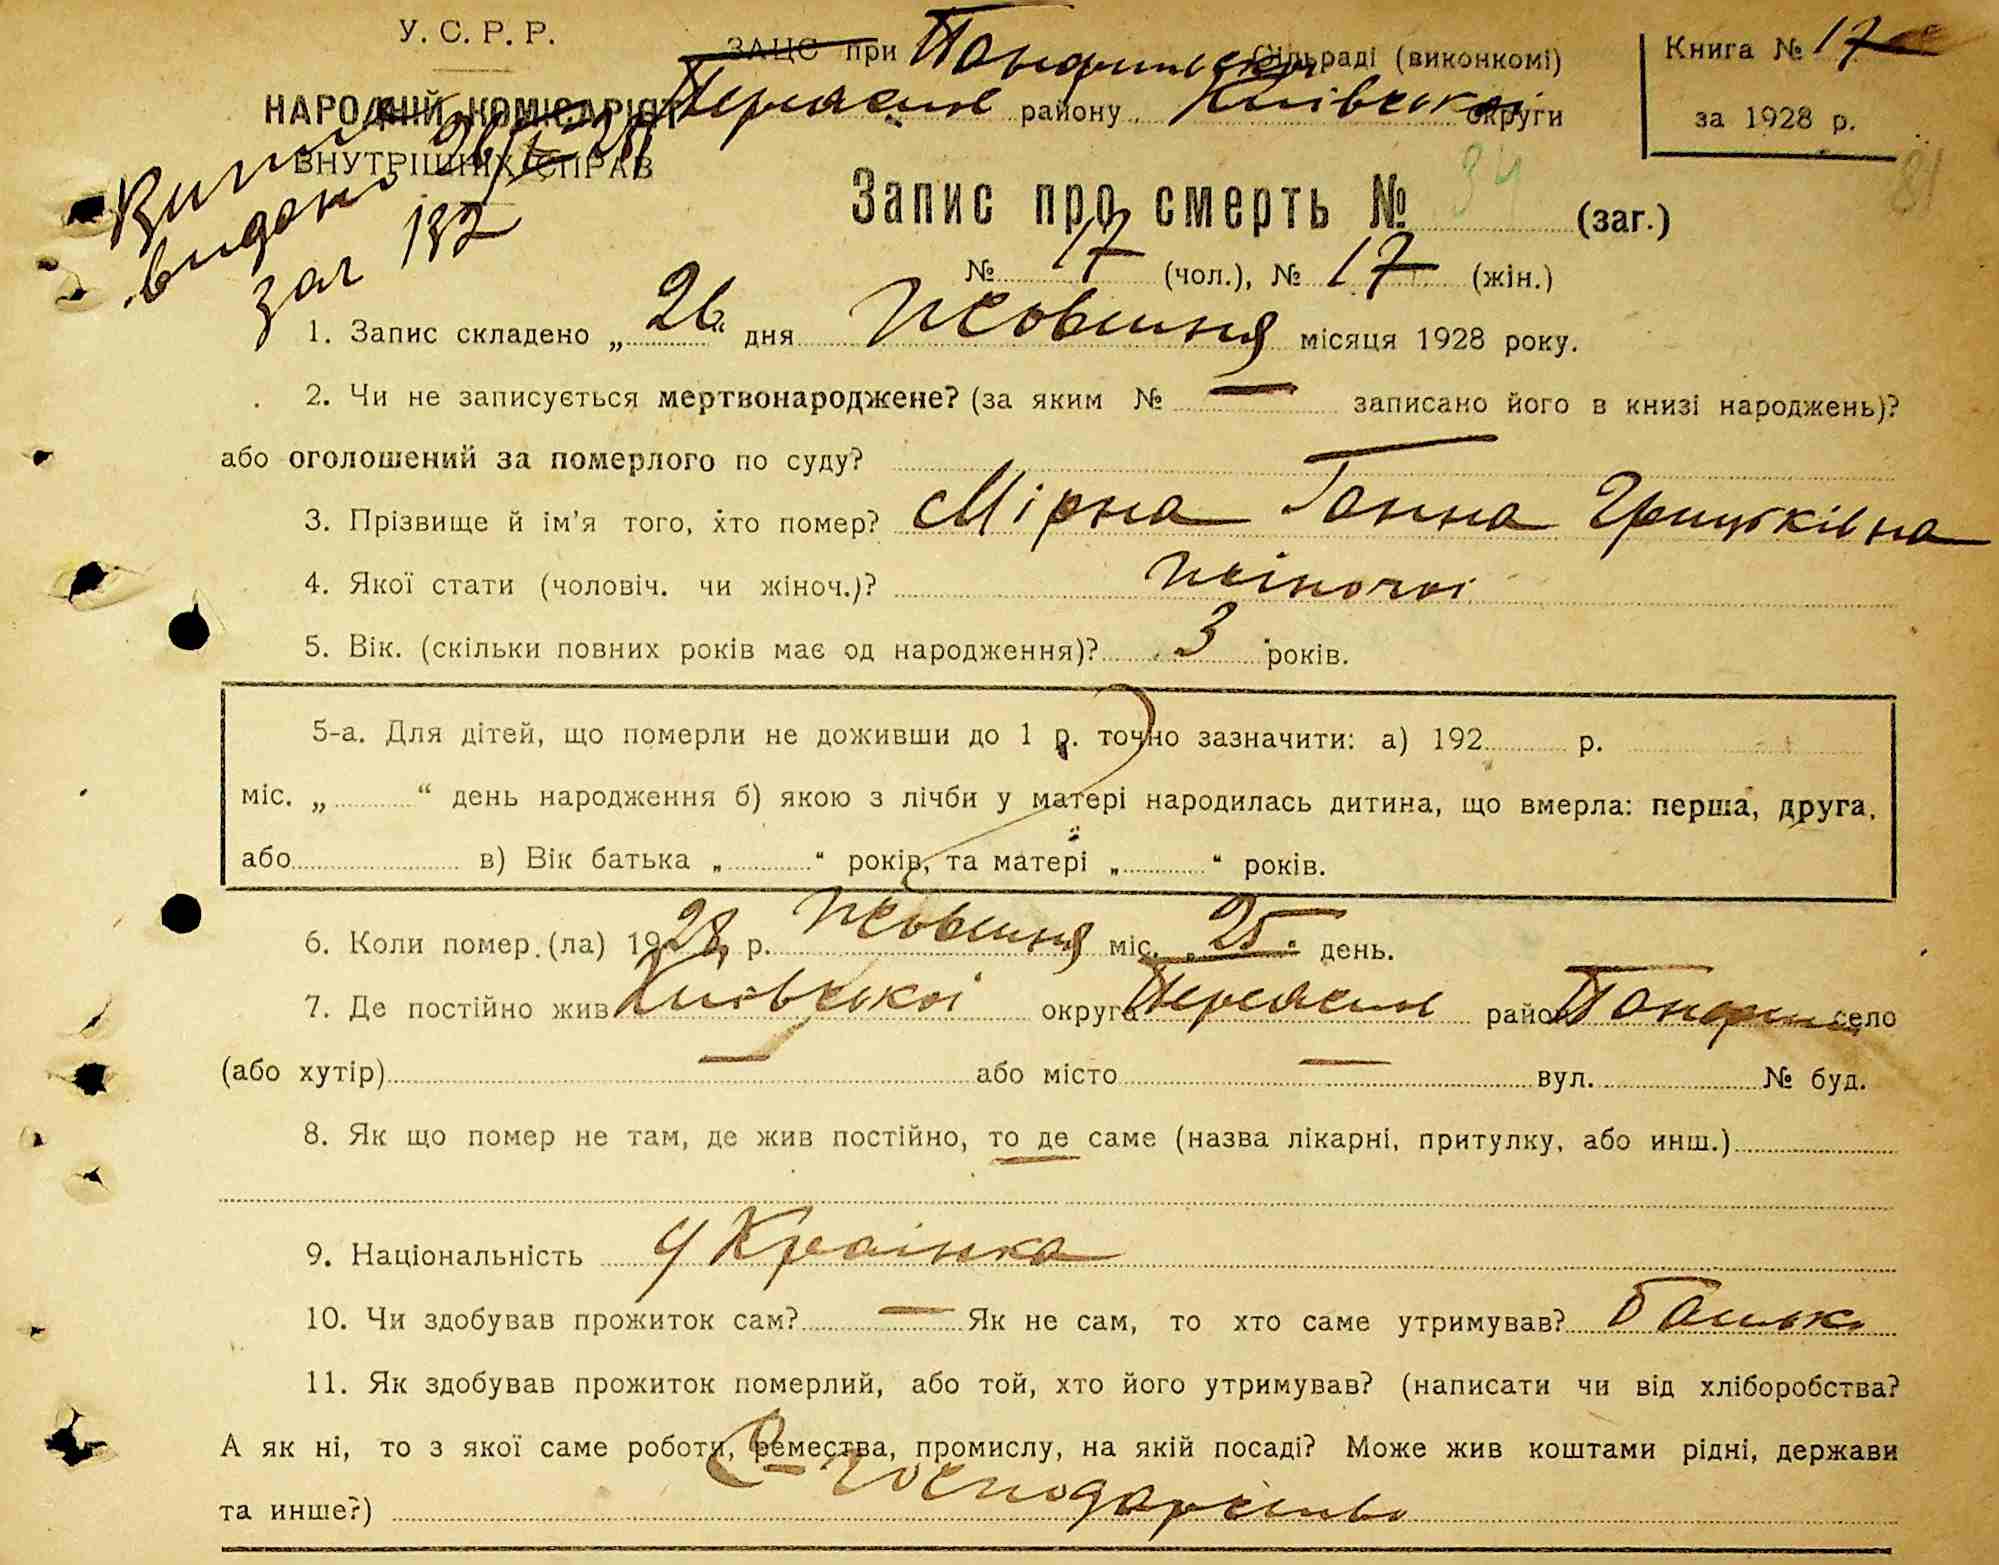 У. С. Р. Р.
ЗАЦС при Панфильській Сільраді (виконкомі)
Книга № 17
НАРОДНІЙ КОМІСАРІЯТ
Переяслі району Київської округи
за 1928 р.
ВНУТРІШНІХ СПРАВ
видано
заг 132
81
Запис про смерть № 34 (заг.)
№ 17 (чол.), № 17 (жін.)
1. Запис складено „26“ дня Жовтня місяця 1928 року.
2. Чи не записується мертвонароджене? (за яким № — записано його в книзі народжень)?
або оголошений за померлого по суду? —
3. Прізвище й ім’я того, хто помер? Мірна Ганна Грицьківна
4. Якої стати (чоловіч. чи жіноч.)? жіночоі
5. Вік. (скільки повних років має од народження)? 3 років.
5-а. Для дітей, що померли не доживши до 1 р. точно зазначити: а) 192 р.
міс. „ “ день народження б) якою з лічби у матері народилась дитина, що вмерла: перша, друга,
або в) Вік батька „ “ років, та матері „ “ років.
6. Коли помер.(ла) 1928 р. Жовтня міс. „25“ день.
7. Де постійно жив Київської округа Переяслі район Панфили село
(або хутір) — або місто — вул. № буд.
8. Як що помер не там, де жив постійно, то де саме (назва лікарні, притулку, або инш.)
9. Національність Украінка
10. Чи здобував прожиток сам? — Як не сам, то хто саме утримував? Батько
11. Як здобував прожиток померлий, або той, хто його утримував? (написати чи від хліборобства?
А як ні, то з якої саме роботи, ремества, промислу, на якій посаді? Може жив коштами рідні, держави
та инше?) С-господарство